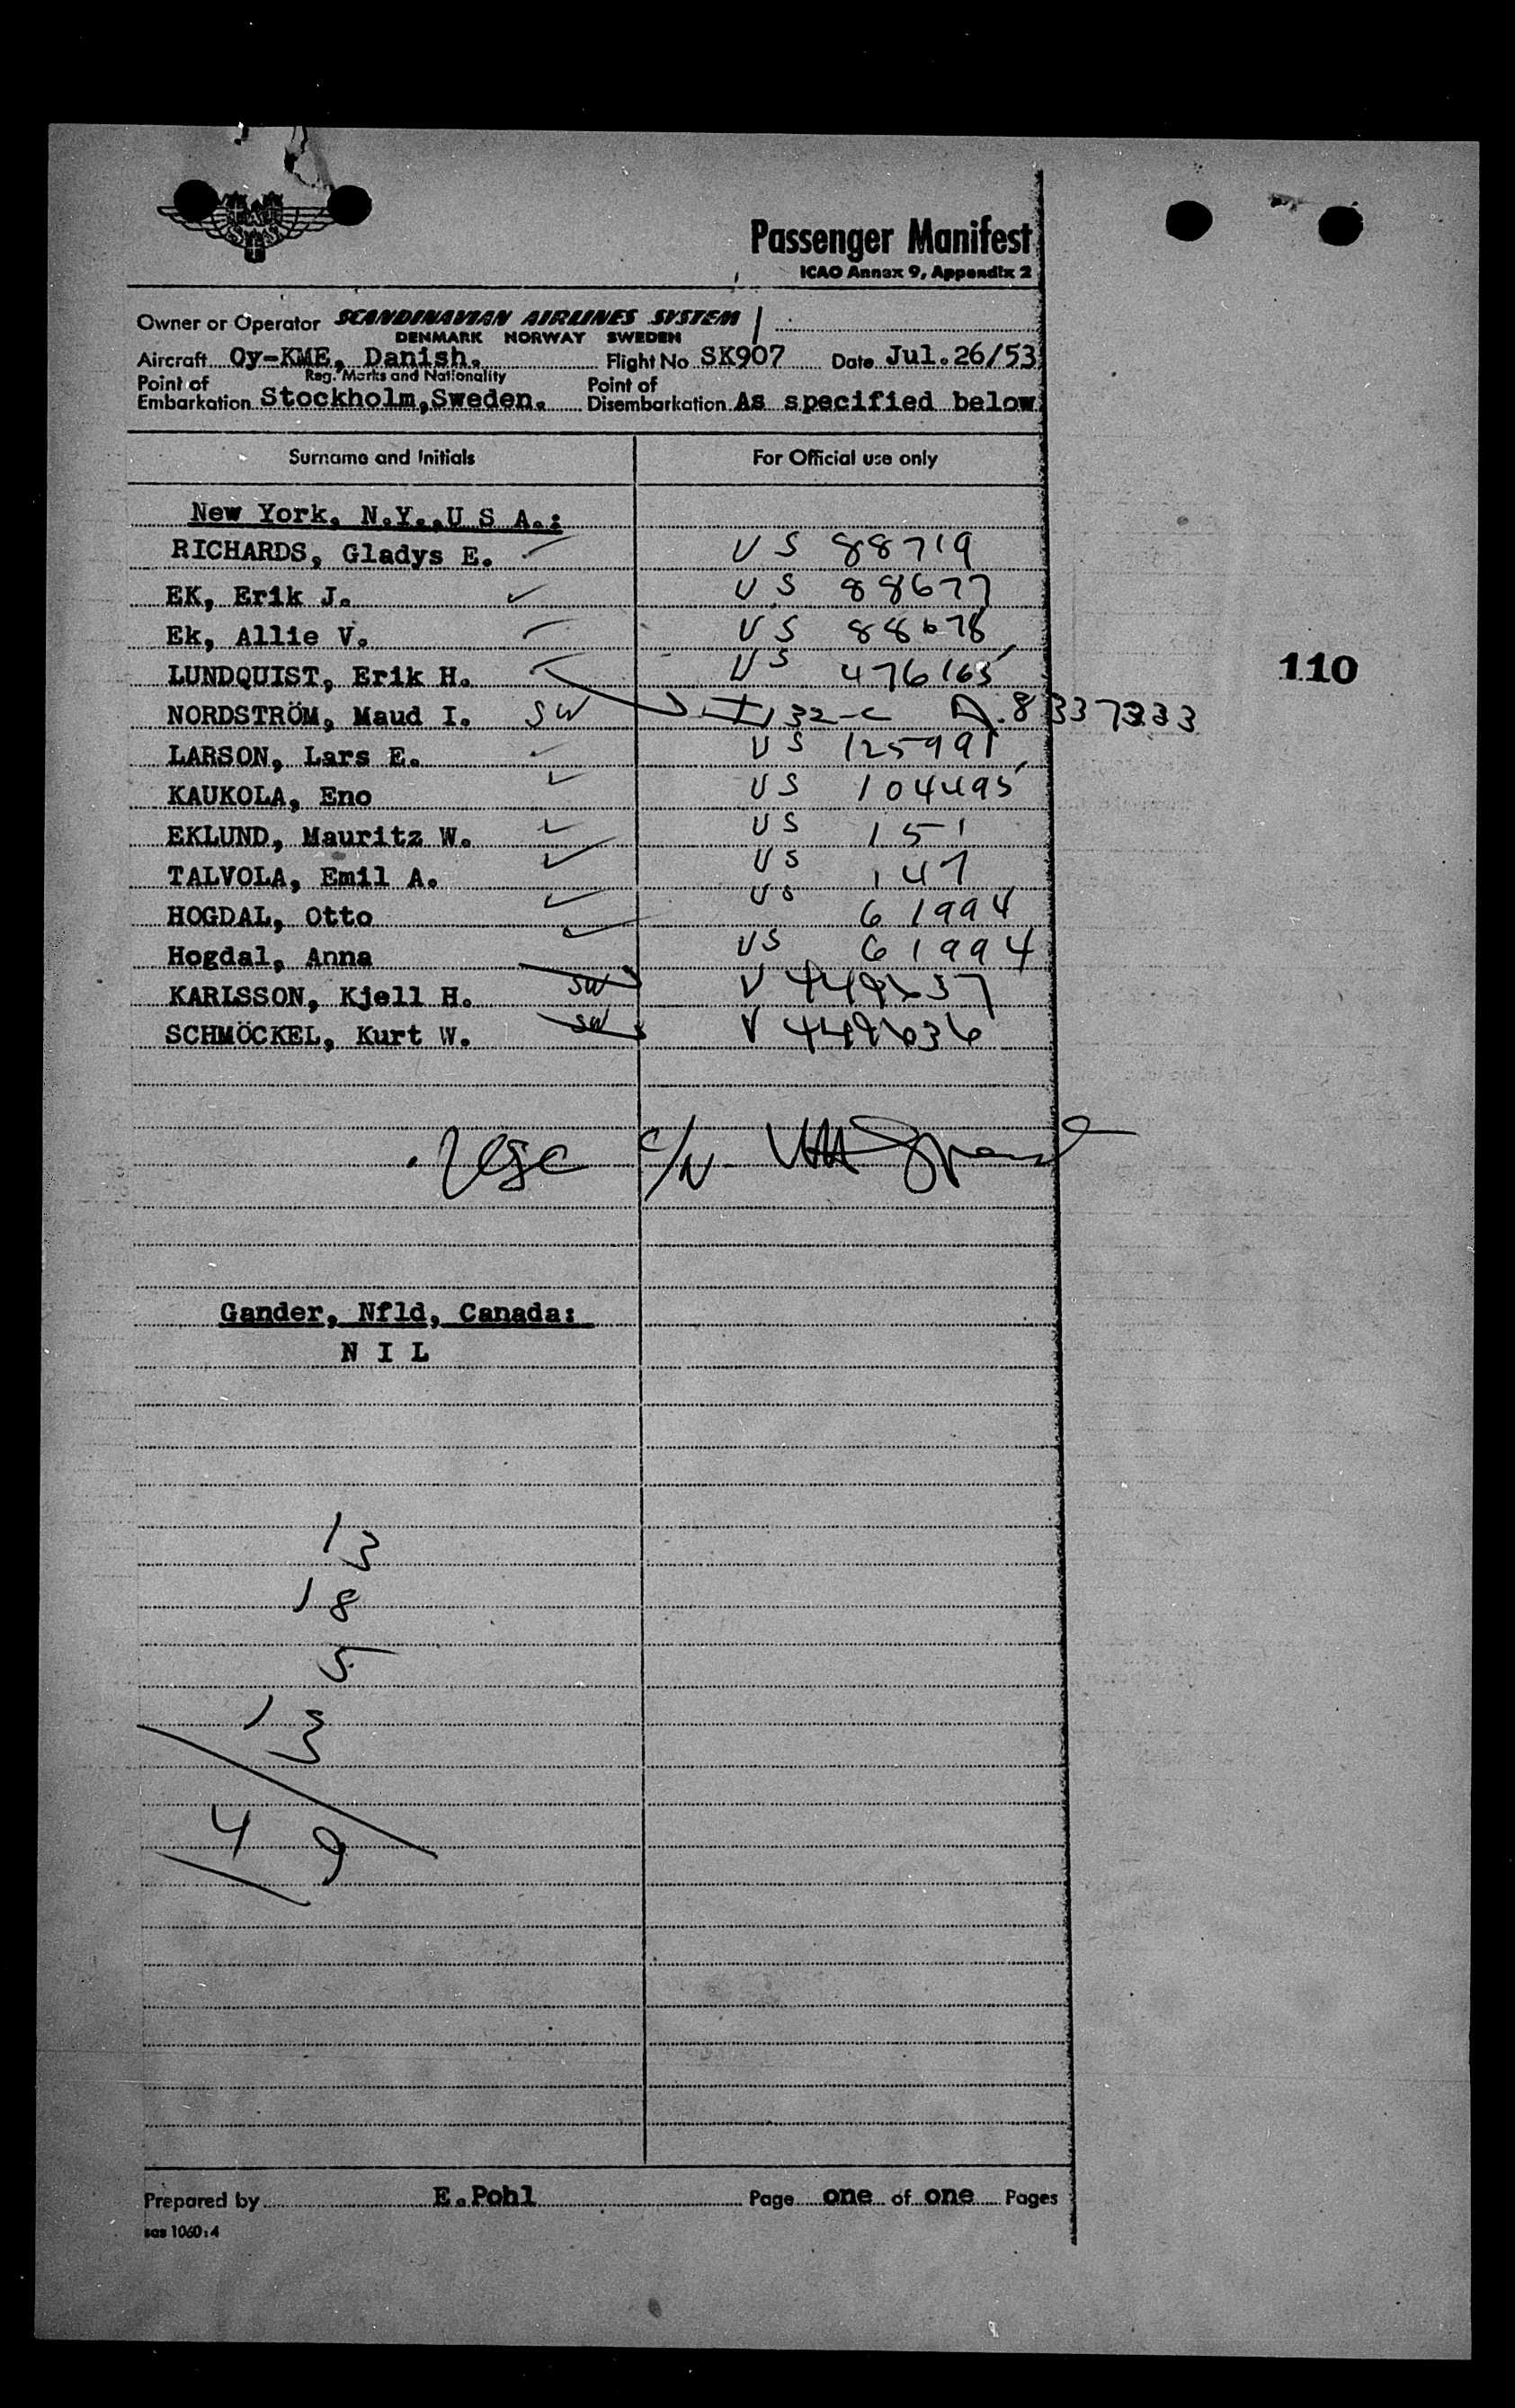 Passenger Manifest
ICAO Annex 9, Appendix 2
Owner or Operator SCANDINAVIAN AIRLINES SYSTEM
DENMARK NORWAY SWEDEN
Aircraft Oy-KME, Danish. Flight No SK907 Date Jul.26/53
Reg. Marks and Nationality
Point of Embarkation Stockholm,Sweden. Point of Disembarkation As specified below
Surname and Initials For Official use only
New York, N.Y.,U S A.:
RICHARDS, Gladys E. US 88719
EK, Erik J. US 88677
Ek, Allie V. US 88678
LUNDQUIST, Erik H. US 476165
110
NORDSTRÖM, Maud I. SW I 132-C A.8337333
LARSON, Lars E. US 125991
KAUKOLA, Eno US 104495
EKLUND, Mauritz W. US 151
TALVOLA, Emil A. US 147
HOGDAL, Otto US 61994
Hogdal, Anna US 61994
KARLSSON, Kjell H. SW V 449637
SCHMÖCKEL, Kurt W. SW V 449636
C/N
Gander, Nfld, Canada:
N I L
13
18
5
13
49
Prepared by E.Pohl Page one of one Pages
sas 1060:4